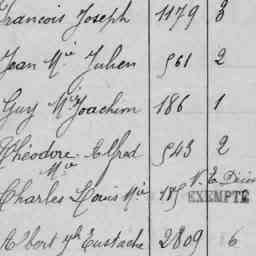 François Joseph 1179 3
Jean Mie Julien 961 2
Guy Mie Joachim 186 1
Théodore Alfred 943 2
Mie
Charles Louis Mie 185 V. E.
EXEMPTÉ
Albert Jh Eustache 2809 6